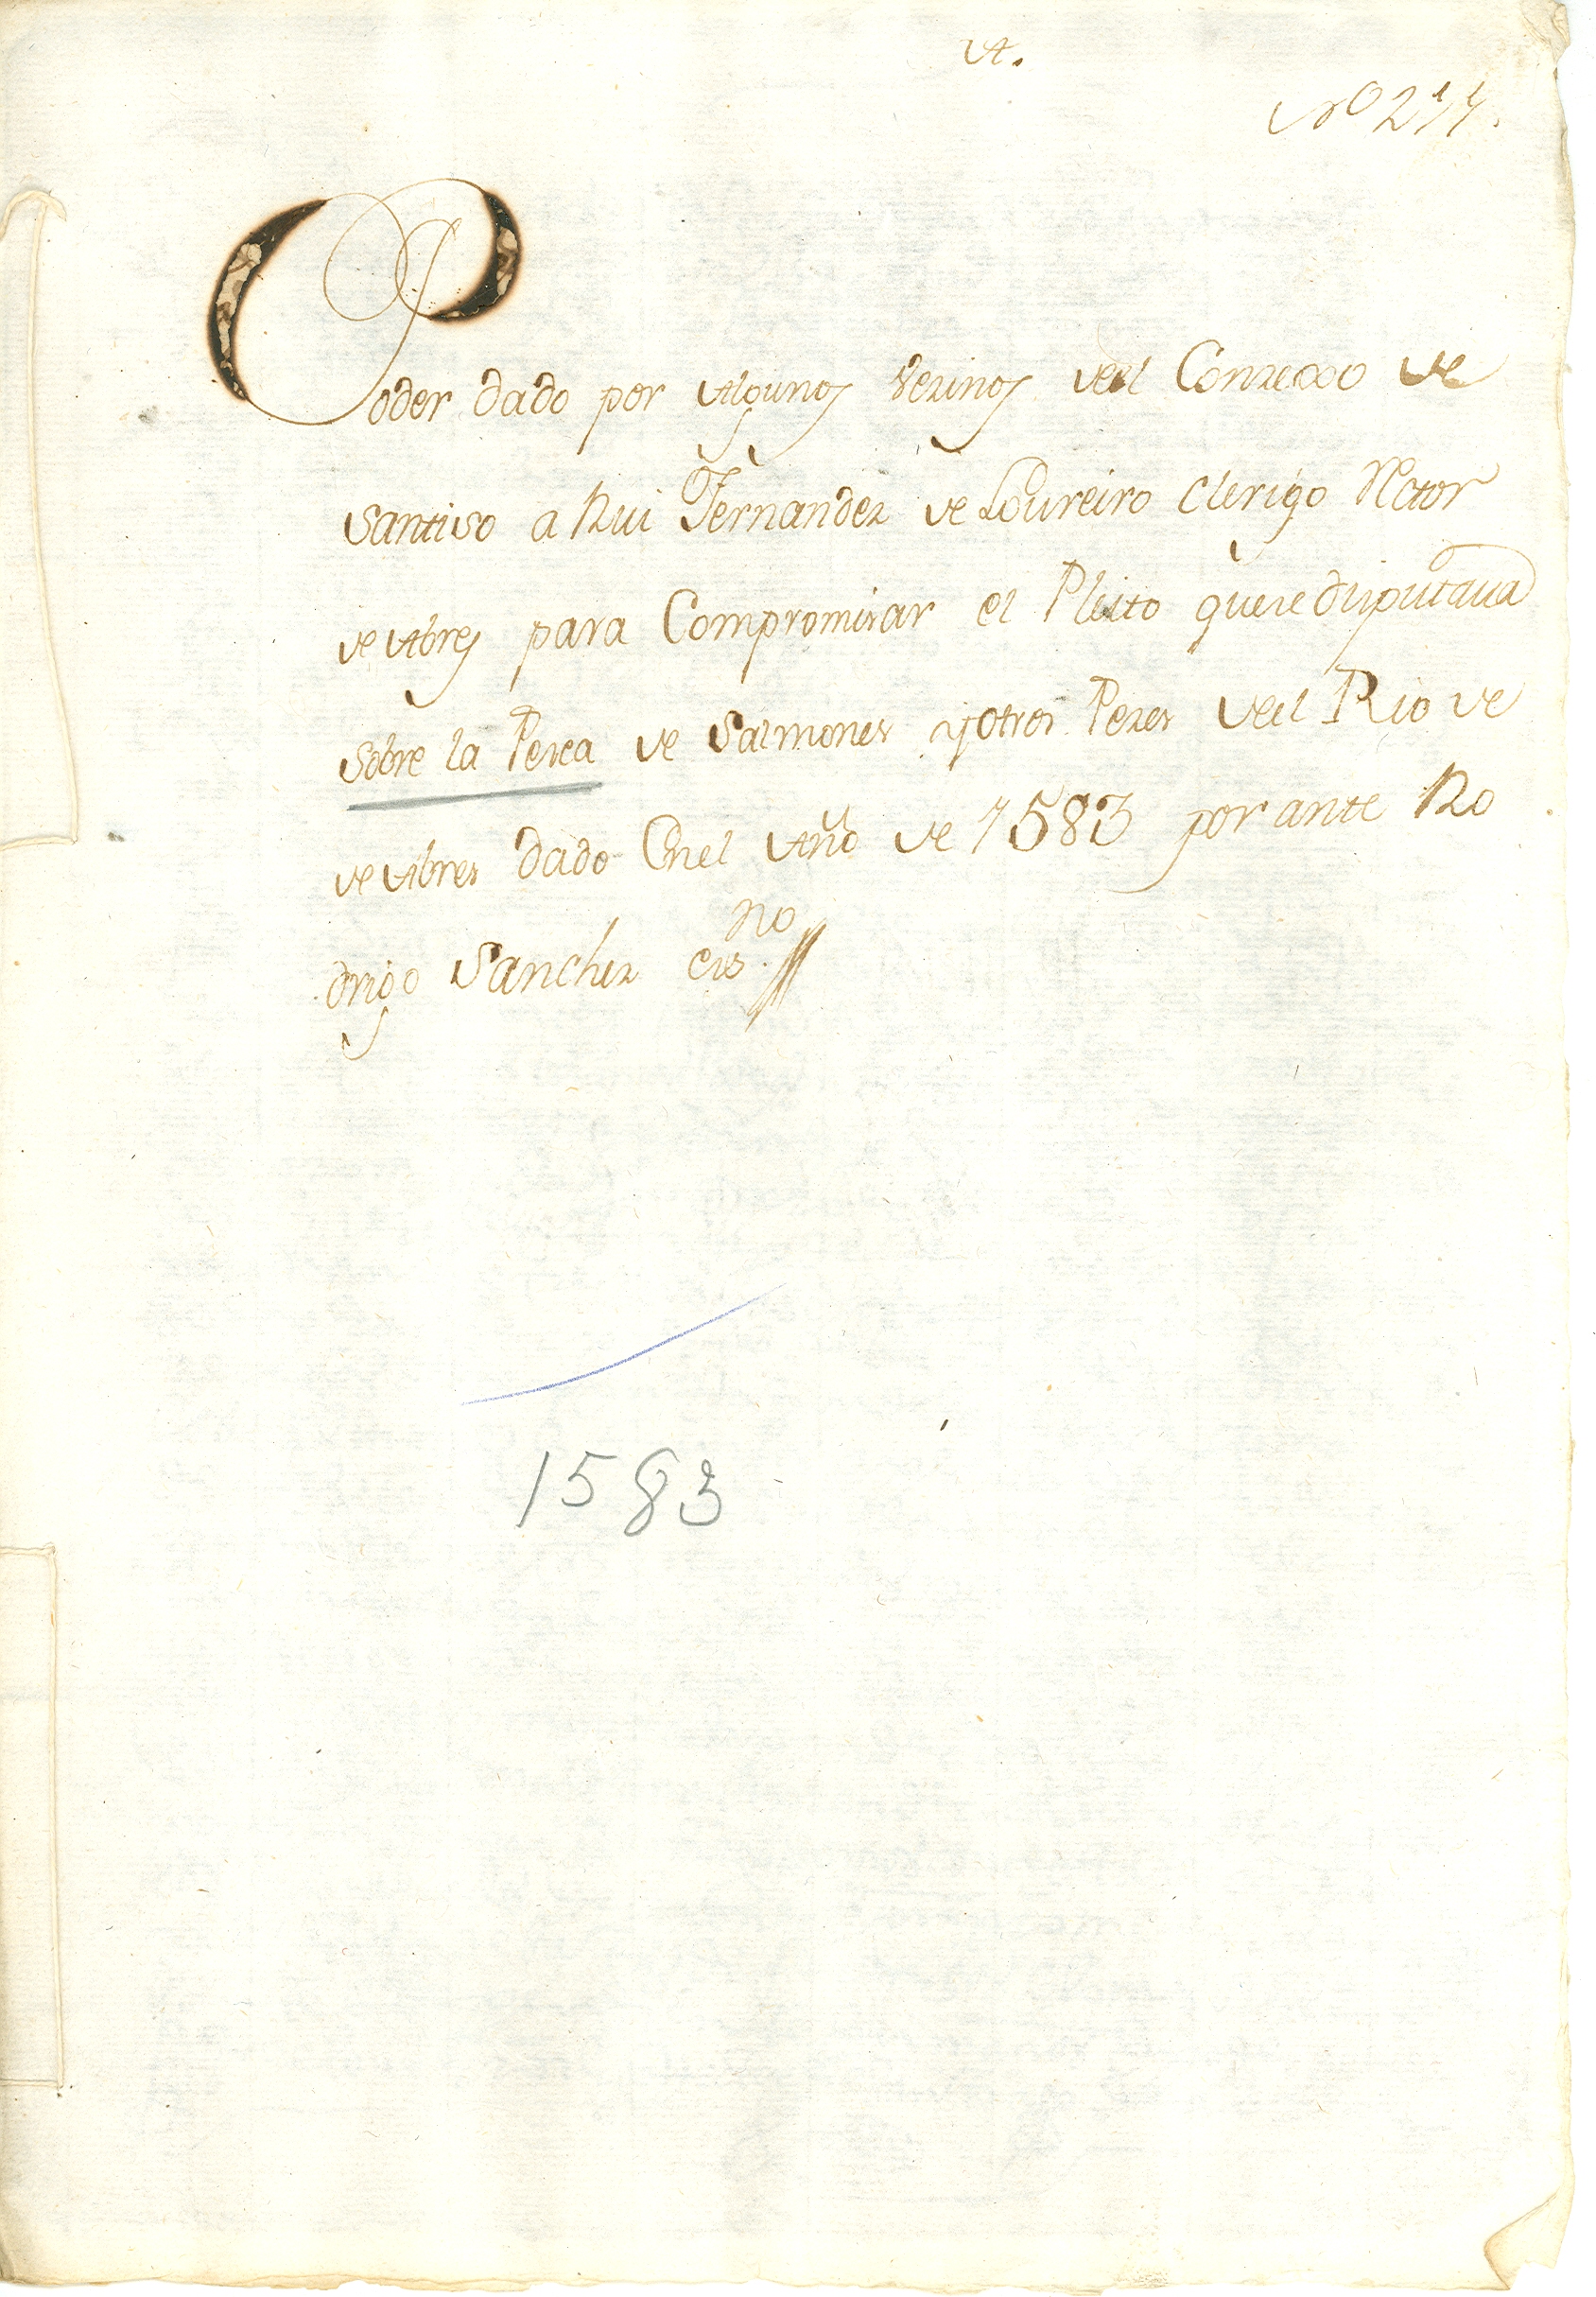 A.
Nº 244.
Poder dado por Algunos Vezinos deel Conzexo de
Santiso a Rui Fernandez de Loureiro Clerigo Rector
de Abres para Compromisar el Pleito que se disputaua
sobre la Pesca de Salmones y otros Pezes deel Rio de
de Abres dado En el Año de 1583 por ante Ro
drigo Sanchez essno
1583